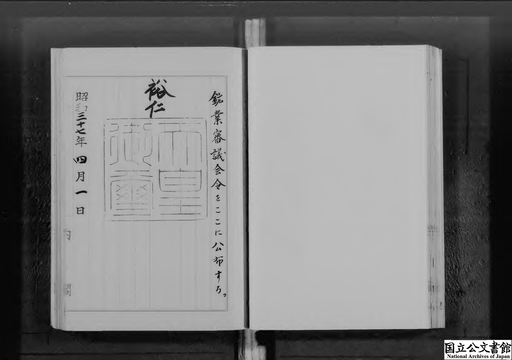 鉱業審議会令をここに公布する。
裕仁
天皇御璽
昭和三十七年四月一日
内閣
国立公文書館
National Archives of Japan